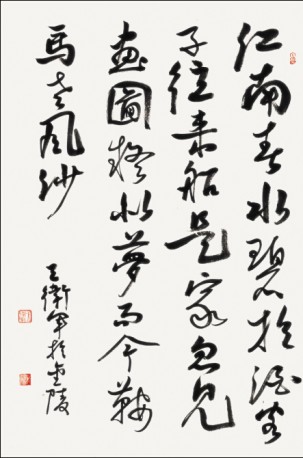 江南春水碧於酒客
子往来船是家忽見
畫圖疑似夢而今鞍
馬老風沙
王衛軍於金陵